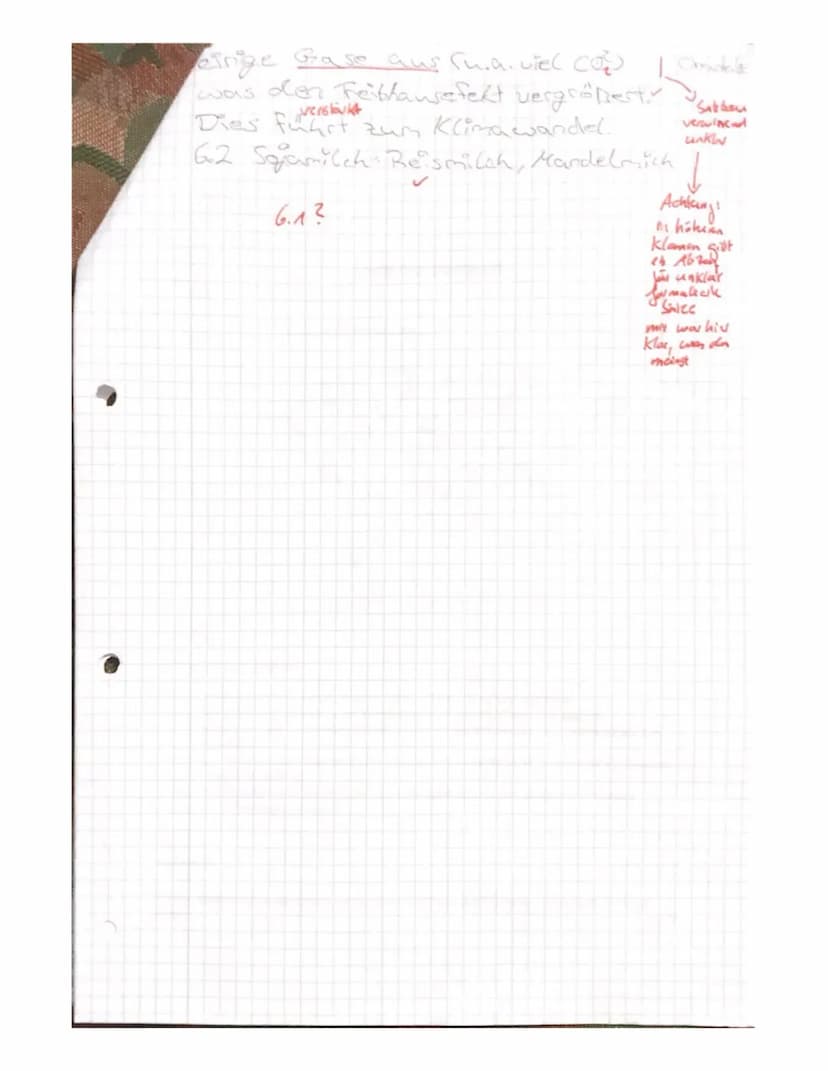 einige Gase aus (u.a. viel CO2)
was den Treibhausefekt vergrößert.
verstärkt
Dies führt zum Klimawandel.
6.2 Sojamilch, Reismilch, Mandelmilch
6.1?
Satzbau
verwirrend
unklar
Achtung:
in höheren
Klassen gibt
es Abzug
für unklar
formulierte
Sätze
mir war hier
klar, was du
meinst